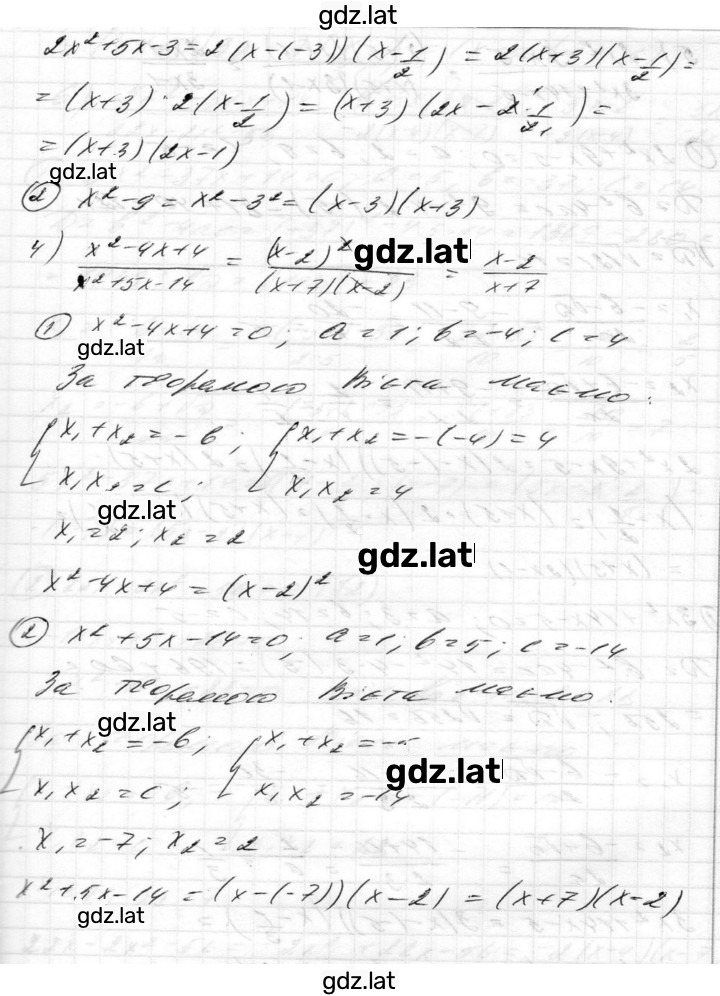 gdz.lat
2x²+5x-3=2(x-(-3))(x-1/2)=2(x+3)(x-1/2)=
=(x+3)·2(x-1/2)=(x+3)(2x-2·1/2)=
=(x+3)(2x-1)
gdz.lat
② x²-9=x²-3²=(x-3)(x+3)
4) (x²-4x+4)/(x²+5x-14) = (x-2)²/((x+7)(x-2)) = (x-2)/(x+7)
gdz.lat
① x²-4x+4=0; a=1; b=-4; c=4
gdz.lat
За теоремою Вієта маємо:
{x₁+x₂=-b; {x₁+x₂=-(-4)=4
x₁x₂=c; x₁x₂=4
gdz.lat
x₁=2; x₂=2
gdz.lat
x²-4x+4=(x-2)²
② x²+5x-14=0; a=1; b=5; c=-14
За теоремою Вієта маємо:
gdz.lat
{x₁+x₂=-b; {x₁+x₂=-5
gdz.lat
x₁x₂=c; x₁x₂=-14
x₁=-7; x₂=2
x²+5x-14=(x-(-7))(x-2)=(x+7)(x-2)
gdz.lat
gdz.lat